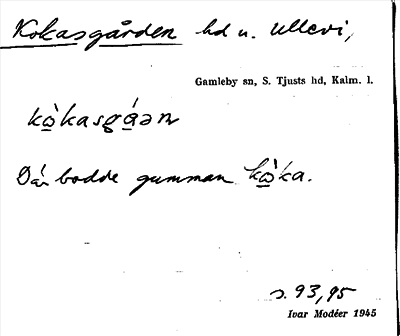 Kokasgården hd u. Ullevi,
Gamleby sn, S. Tjusts hd, Kalm. l.
kὼkasgáən
Där bodde gumman kὼka.
s. 93, 95
Ivar Modéer 1945